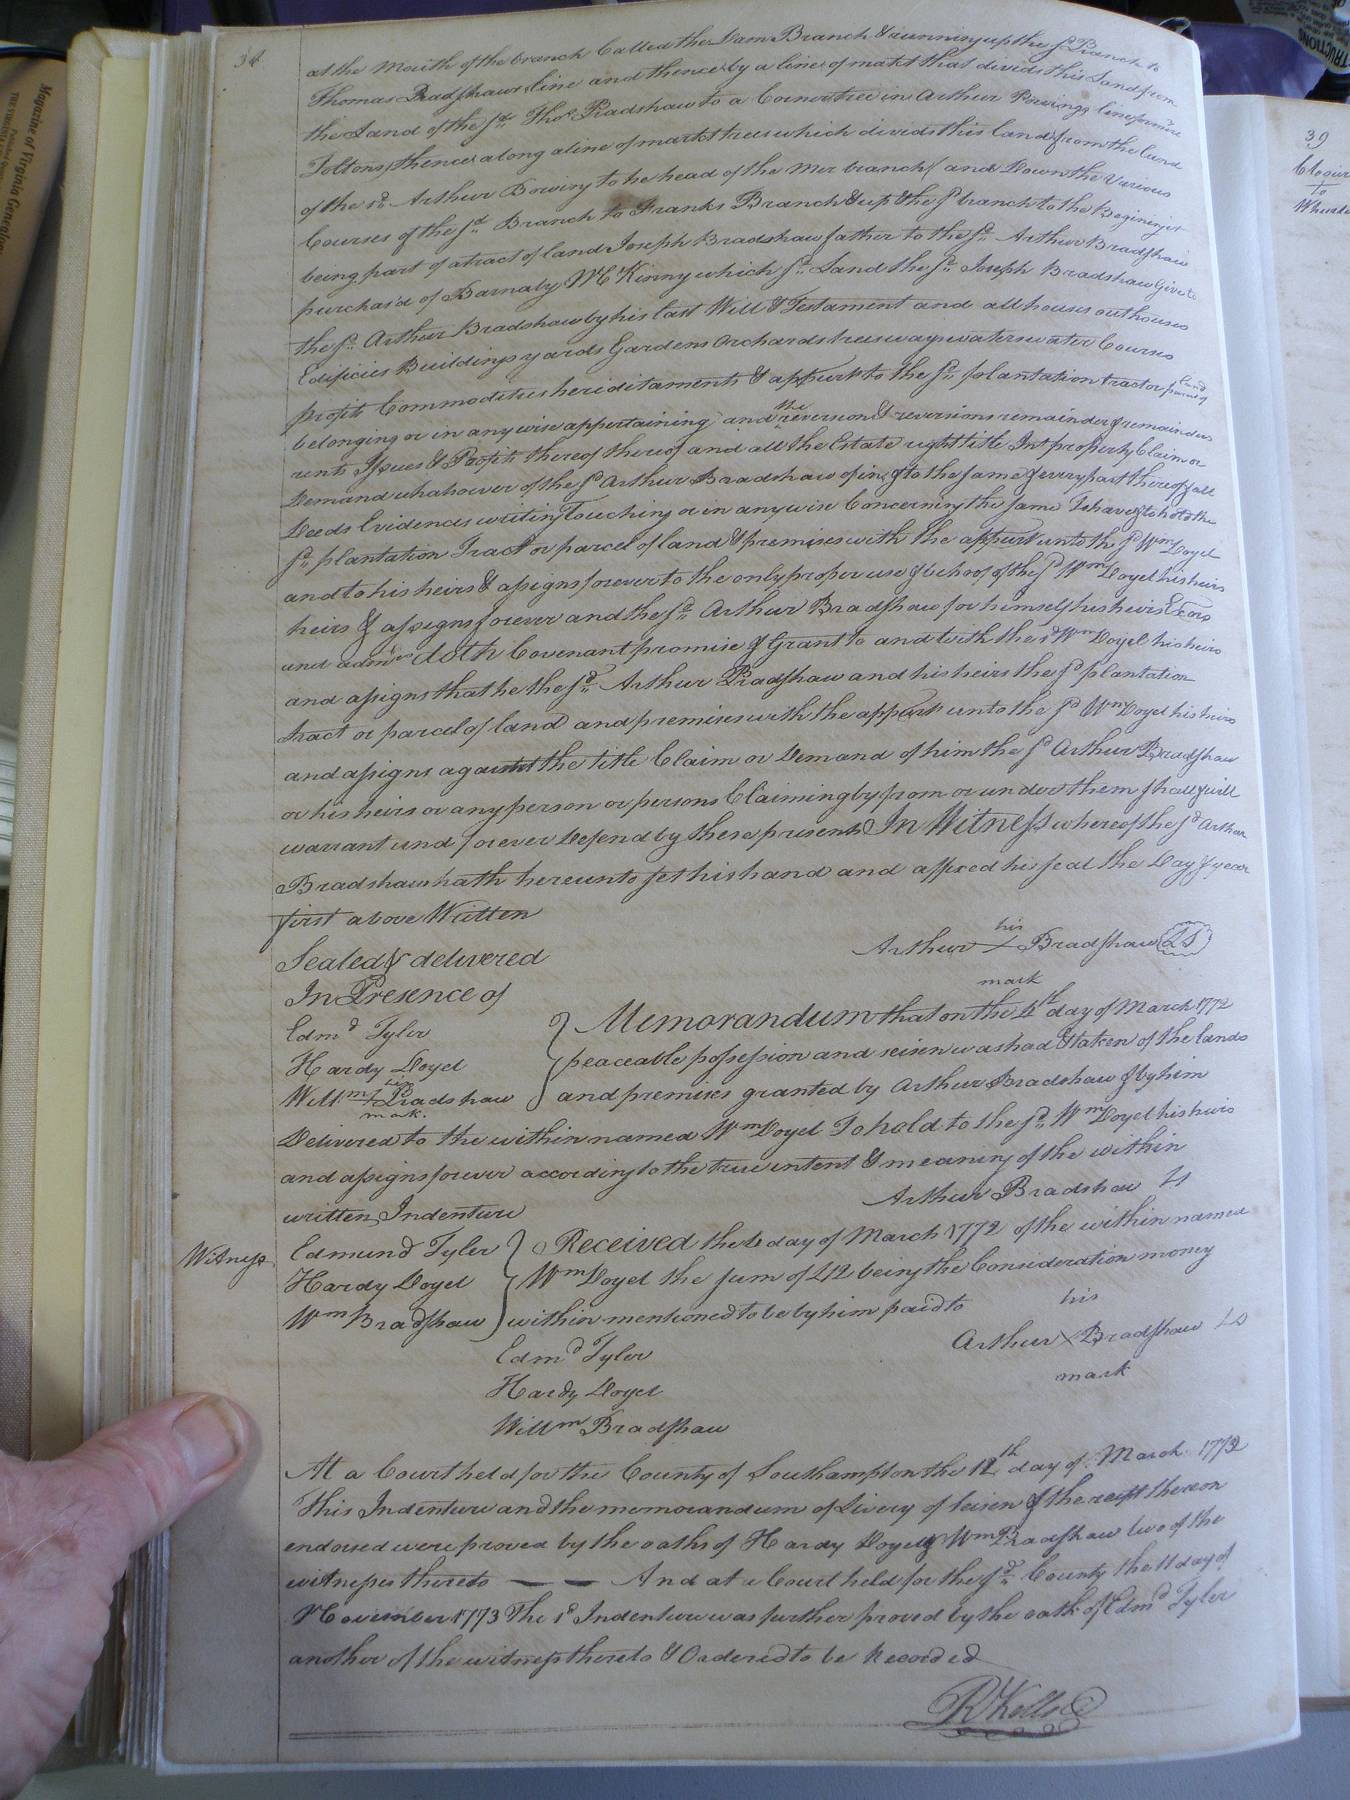 38
at the Mouth of the branch Called the Dam Branch & running up the sd. Branch to
Thomas Bradshaws line and thence by a line of markt that divids this Land from
the Land of the sd. Thos. Bradshaw to a Corner tree in Arthur Bowings line
Joltons thence along a line of markt trees which divids this land from the land
of the sd. Arthur Bowing to he head of the Mer branch and Down the Various
Courses of the sd. Branch to Franks Branch & up the sd branch to the Begining it
being part of a tract of land Joseph Bradshaw father to the sd. Arthur Bradshaw
purchas'd of Barnaby McKinny which sd. Land the sd. Joseph Bradshaw Give to
the sd. Arthur Bradshaw by his last Will & Testament and all houses outhouses
Edificies Buildings yards Gardens Orchards trees ways waters water Courses
profits Commodities hereditaments & appurts to the sd. plantation tract or parcel of land
belonging or in any wise appertaining and the reversion & reversions remainder & remainders
rents Issues & Profits thereof thereof and all the Estate right title Int property Claim or
Demand whatsover of the sd Arthur Bradshaw of in & to the same & every part thereof & all
Deeds Evidences writing Touching or in any wise Concerning the same To have & to hold the
sd. plantation Tract or parcel of land & premises with the appurt unto the sd Wm Doyel
and to his heirs & assigns forever to the only proper use & behoof of the sd Wm Doyel his heirs
heirs & assigns forever and the sd. Arthur Bradshaw for himself his heirs Exors
and admrs doth Covenant promise & Grant to and with the sd Wm Doyel his heirs
and assigns that he the sd. Arthur Bradshaw and his heirs the sd plantation
tract or parcel of land and premises with the appurt unto the sd Wm Doyel his heirs
and assigns against the title Claim or Demand of him the sd Arthur Bradshaw
or his heirs or any person or persons Claiming by from or under them shall & will
warrant and forever Defend by these presents In Witness whereof the sd Arthur
Bradshaw hath hereunto set his hand and affixed his seal the Day & year
first above Written
his
Arthur X Bradshaw LS
mark
Sealed & delivered
In Presence of
Edmd Tyler
Hardy Doyel
his
Willm + Bradshaw
mark.
Memorandum that on the 4th day of March 1772
peaceable possession and seisen was had & taken of the lands
and premises granted by Arthur Bradshaw & by him
Delivered to the within named Wm Doyel To hold to the sd. Wm Doyel his heirs
and assigns forever according to the true intent & meaning of the within
written Indenture
Arthur Bradshaw LS
Witness
Edmund Tyler
Hardy Doyel
Wm Bradshaw
Received the day of March 1772 of the within named
Wm Doyel the sum of £12 being the Consideration money
within mentioned to be by him paid to
his
Arthur X Bradshaw LS
mark
Edmd Tyler
Hardy Doyel
Willm Bradshaw
At a Court held for the County of Southampton the 12th day of March 1772
This Indenture and the memorandum of Livery of seisen & the receipt thereon
endorsed were proved by the oaths of Hardy Doyel & Wm Bradshaw two of the
witnesses thereto — — And at a Court held for the sd. County the 11 day of
November 1773 The sd Indenture was further proved by the oath of Edmd Tyler
another of the witness thereto & Ordered to be Recorded
R Kello
39
to
Magazine of Virginia Genealogy